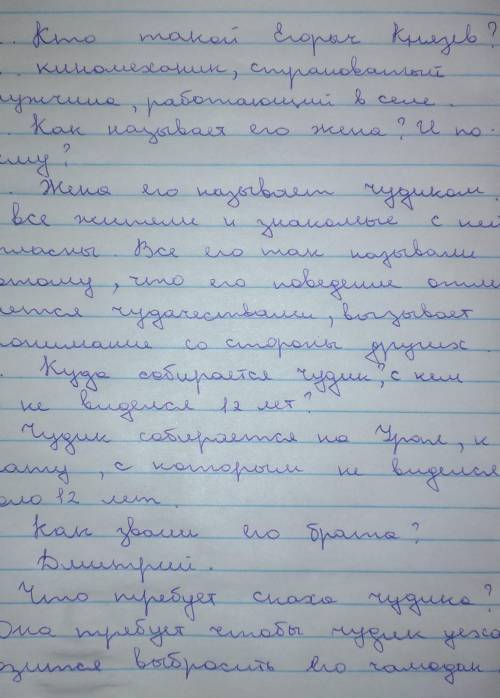 Кто такой Егорыч Князев?
киномеханик, странноватый
ужчина, работающий в селе.
Как называет его жена? И по-
ему?
Жена его называет чудиком.
все жители и знакомые с ней
гласны. Все его так называли
отому, что его поведение отли
ается чудачествами, вызывает
понимание со стороны других.
Куда собирается чудик?, с кем
не виделся 12 лет?
Чудик собирается на Урал, к
рату, с которым не виделся
оло 12 лет.
Как звали его брата?
Дмитрий.
Что требует сноха чудика?
Она требует чтобы чудик уеха
озится выбросить его чемодан